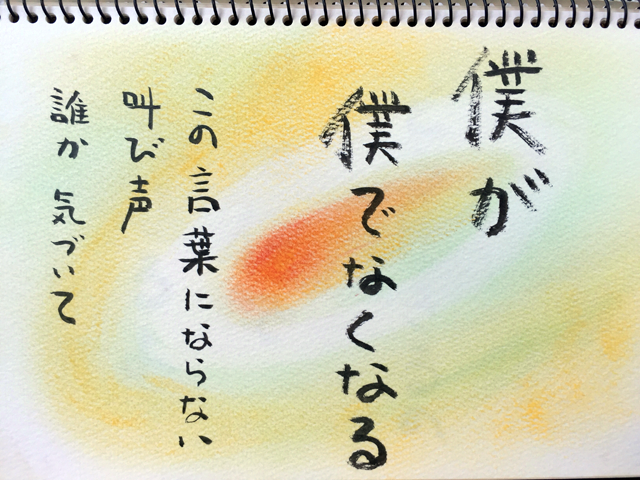 僕が
僕でなくなる
この言葉にならない
叫び声
誰か 気づいて